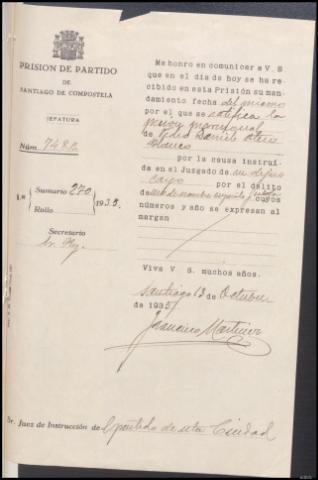 PRISION DE PARTIDO
DE
SANTIAGO DE COMPOSTELA
JEFATURA
Núm. 7480
1.º Sumario 270
Rollo 1935.
Secretario
Sr. Rey.
Me honro en comunicar a V. S.
que en el dia de hoy se ha re-
cibido en esta Prisión su man-
damiento fecha del mismo
por el que se ratifica la
prision provisional
de Pedro Otero
Blanco
por la causa instruí-
da en el Juzgado de su digno
cargo por el delito
de cuyos
números y año se expresan al
margen
Viva V S. muchos años.
Santiago 13 de Octubre
de 1935
Francisco Martinez
Sr. Juez de Instrucción de l partido de esta Ciudad